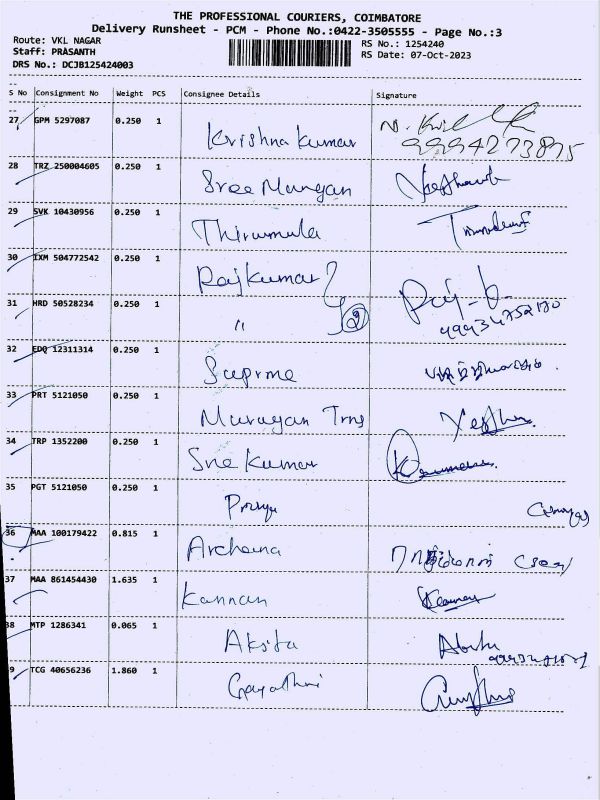 THE PROFESSIONAL COURIERS, COIMBATORE
Delivery Runsheet - PCM - Phone No.:0422-3505555 - Page No.:3
Route: VKL NAGAR
RS No.: 1254240
Staff: PRASANTH
RS Date: 07-Oct-2023
DRS No.: DCJB125424003
S No Consignment No Weight PCS Consignee Details Signature
27 GPM 5297087 0.250 1 Krishna Kumar
9994273875
28 TRZ 250004605 0.250 1 Sree Murugan
29 SVK 10430956 0.250 1 Thirumula
30 IXM 504772542 0.250 1 Rajkumar
31 HRD 50528234 0.250 1 " 2
32 EDQ 12311314 0.250 1 Suprme
33 PRT 5121050 0.250 1 Murugan Trns
34 TRP 1352200 0.250 1 Sree Kumar
35 PGT 5121050 0.250 1 Priya
36 MAA 100179422 0.815 1 Archana
37 MAA 861454430 1.635 1 Kannan
38 MTP 1286341 0.065 1 Aksita
9 TCG 40656236 1.860 1 Gayathri